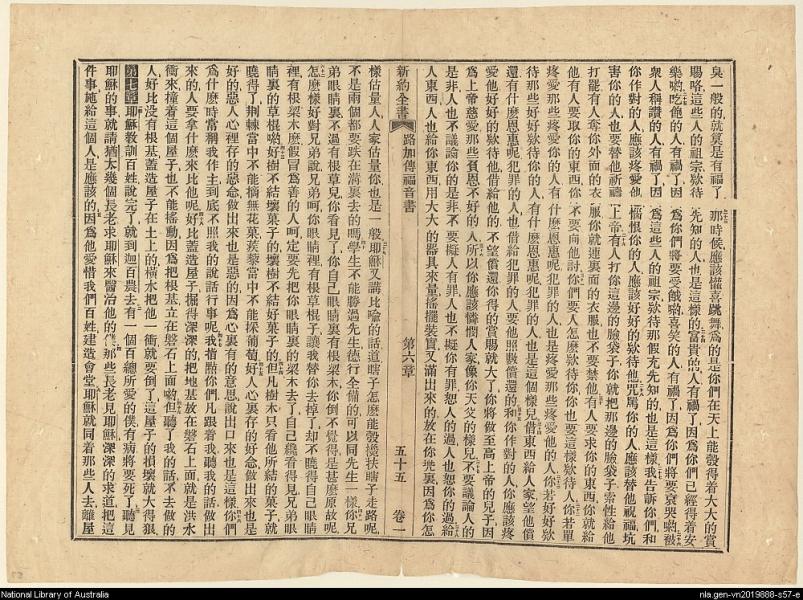 臭一般的就算是有福了那時候應該懽喜跳舞爲的是你們在天上能彀得着大大的賞
賜咯這些人的祖宗欵待先知的人也是這樣的富貴的人有禍了因爲你們已經得着安
樂喲吃飽的人有禍了因爲你們將要受餓喲喜笑的人有禍了因爲你們將要哀哭喲被
衆人稱讚的人有禍了因爲這些人的祖宗欵待那假充先知的也是這樣我告訴你們和
你作對的人應該疼愛他憎恨你的人應該好好的欵待他咒罵你的人應該替他祝福坑
害你的人也要替他祈禱上帝有人打你這邊的臉袋子你就把那邊的臉袋子索性給他
打罷有人奪你外面的衣服你就連裏面的衣服也不要禁他有人要求你的東西你就給
他有人要取你的東西你不要向他討你們要人怎麽欵待你你也要這樣欵待人你若單
疼愛那些疼愛你的人有什麽恩惠呢犯罪的人也是疼愛那些疼愛他的人你若好好欵
待那些好好欵待你的人有什麽恩惠呢犯罪的人也是這個樣兒借東西給人家望他償
還有什麽恩惠呢犯罪的人也借給犯罪的人要他照數償還的和你作對的人你應該疼
愛他好好的欵待他借給他的不望償還你得的賞賜就大了你將做至高上帝的兒子因
爲上帝慈愛那些負恩不好的人所以你應該憐憫人家像你天父的樣兒不要議論人的
是非人也不議論你的是非不要擬人有罪人也不擬你有罪恕人的過人也恕你的過給
人東西人也給你東西用大大的器具來量搖擺裝實又滿出來的放在你兜裏因爲你怎
新約全書 路加傳福音書 第六章 五十五 卷一
樣估量人人家估量你也是一般耶穌又講比喻的話道瞎子怎麽能彀攙扶瞎子走路呢
不是兩個都要跌在溝裏去的嗎學生不能勝過先生德行全備的可以同先生一樣你兄
弟眼睛裏不過有根草兒你看見了你自己眼睛裏有根梁木你倒不覺得是甚麽原故呢
怎麽樣好對兄弟說兄弟呵你眼睛裡有根草棍子讓我替你去掉了却不曉得自己眼睛
裡有根梁木麽假冒爲善的人呵定要先把你眼睛裏的梁木去了自己纔看得見兄弟眼
睛裏的草棍喲好樹不結壞菓子的壞樹不結好菓子的但凡樹木只看他所結的菓子就
曉得了荆棘當中不能摘無花菓蒺藜當中不能採葡萄好人心裏存的好念做出來也是
好的惡人心裡存的惡念做出來也是惡的因爲心裏有的意思說出口來也是這樣你們
爲什麽時常稱我作主到底不照我的說話行事呢我指點你們凡跟着我聽我的話做出
來的人要拿什麽來比他呢好比蓋造屋子掘得深深的把地基放在磐石上面就是洪水
衝來撞着這個屋子也不能搖動因爲把根基立在磐石上面喲但聽了我的話不去做的
人好比沒有根基蓋造屋子在土上的橫水把他一衝就要倒了這屋子的損壞就大得狠
第七章耶穌教訓百姓說完了就到迦百農去有一個百總所愛的僕有病將要死了聽見
耶穌的事就請猶太幾個長老求耶穌來醫治他的僕那些長老見耶穌深深的求道把這
件事施給這個人是應該的因爲他愛惜我們百姓建造會堂耶穌就同着那些人去離屋
National Library of Australia
nla.gen-vn2019888-s57-e